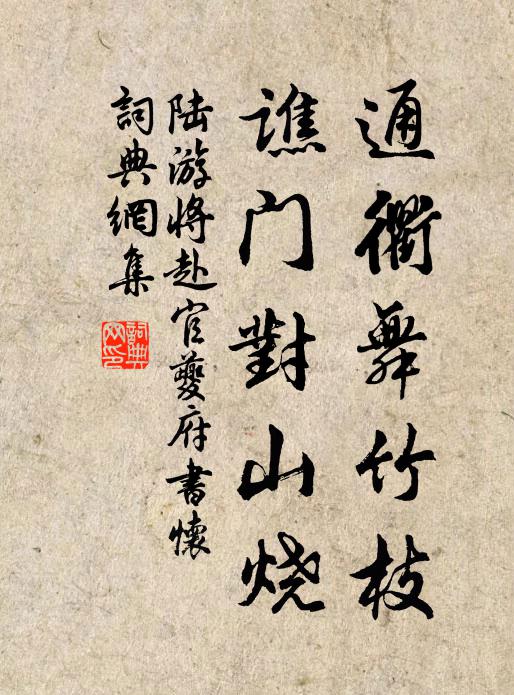 通衢舞竹枝
譙门對山烧
陆游将赴官夔府書懷
詞典網集
詞典網印